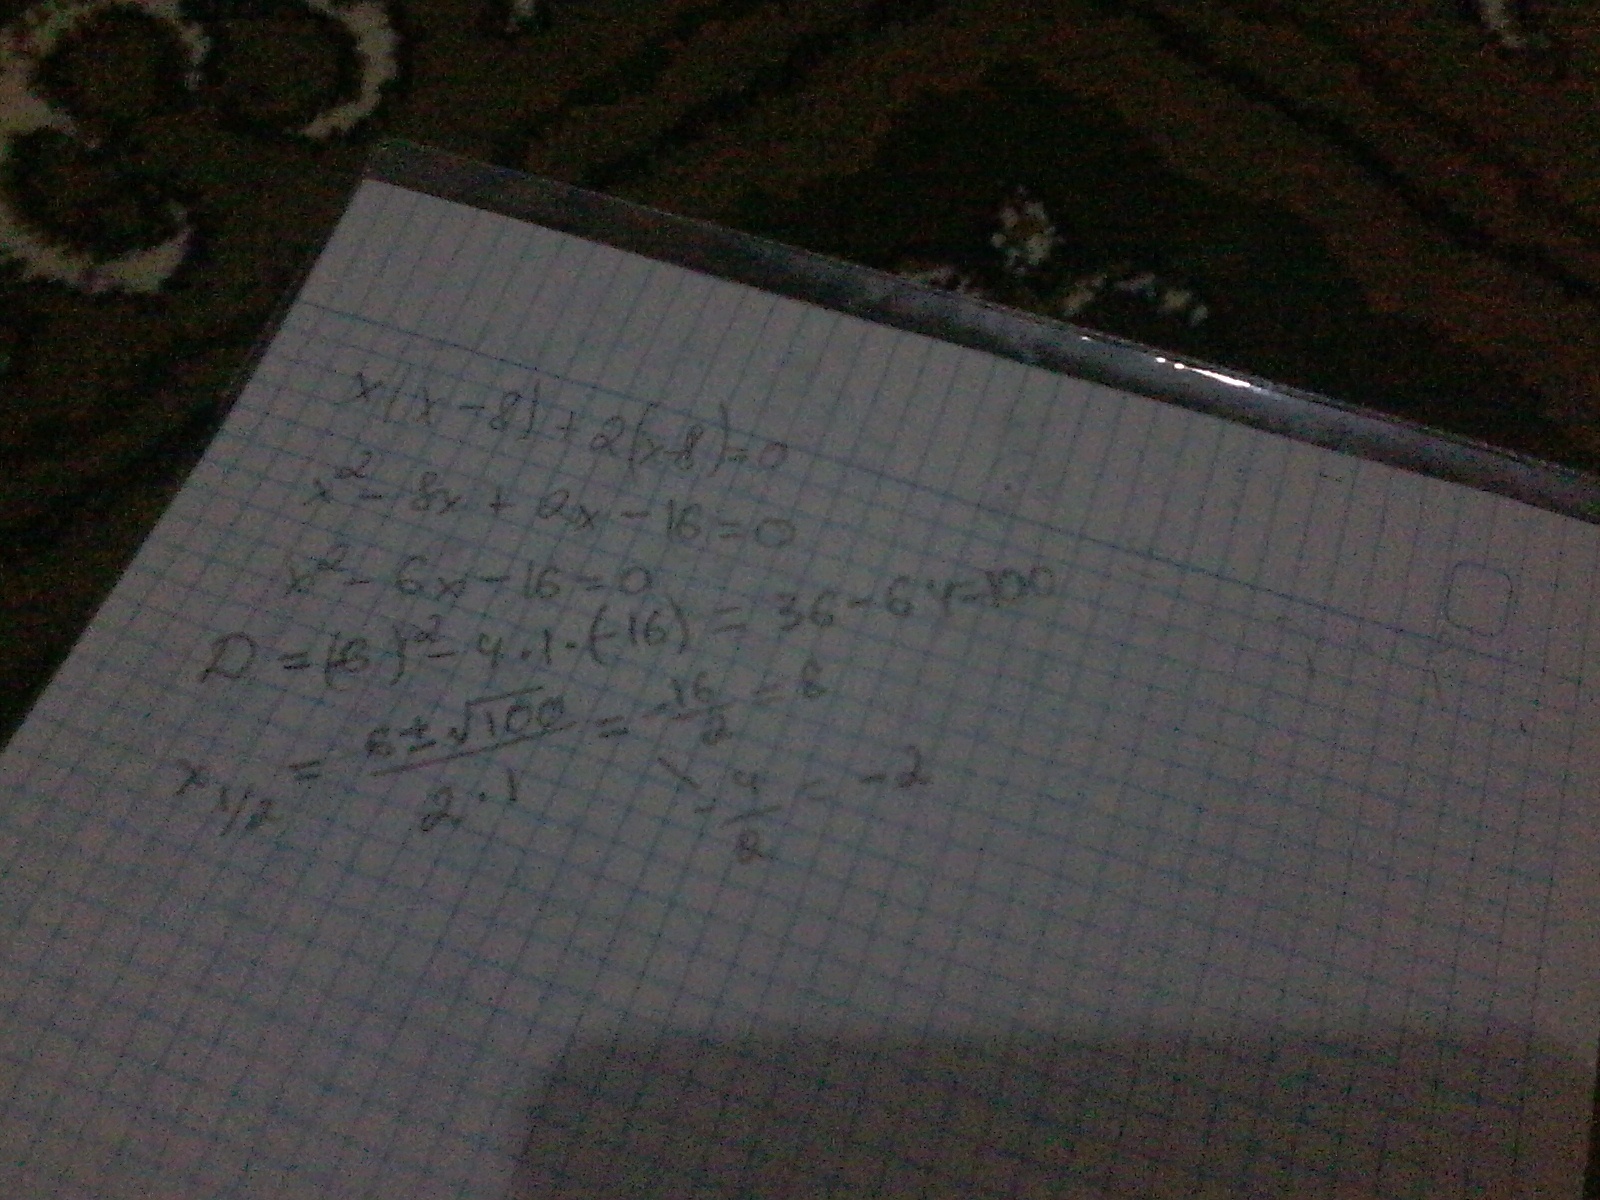 x(x-8)+2(x-8)=0
x²-8x+2x-16=0
x²-6x-16=0
D=(-6)²-4·1·(-16)=36-64=100
x1/2=6±√100/2·1=-16/2=8
-4/2=-2